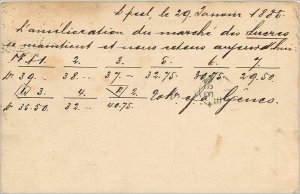 le 29 Janvier 1886.
L'amélioration du marché des sucres
se maintient et nous cotons aujourd'hui
1. 2. 3. 5. 6. 7.
39. 38.- 37.- 32.75. 30.75. 29.50.
3. 4. 2.
35.50. 32.- 40.75. Gênes.